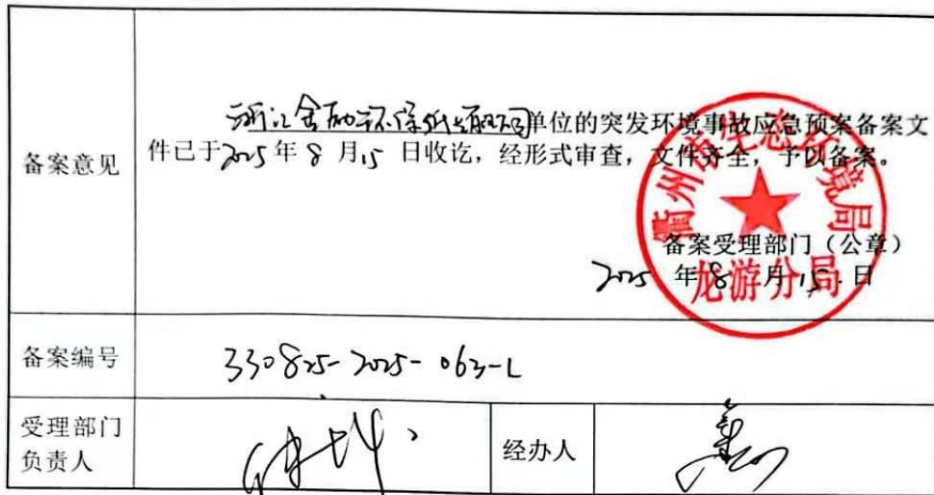 备案意见
浙江金励环保纸业有限公司单位的突发环境事故应急预案备案文
件已于2025年8月15日收讫，经形式审查，文件齐全，予以备案。
衢州市生态环境局
备案受理部门（公章）
2025年8月15日
龙游分局
备案编号
330825-2025-063-L
受理部门
负责人
经办人